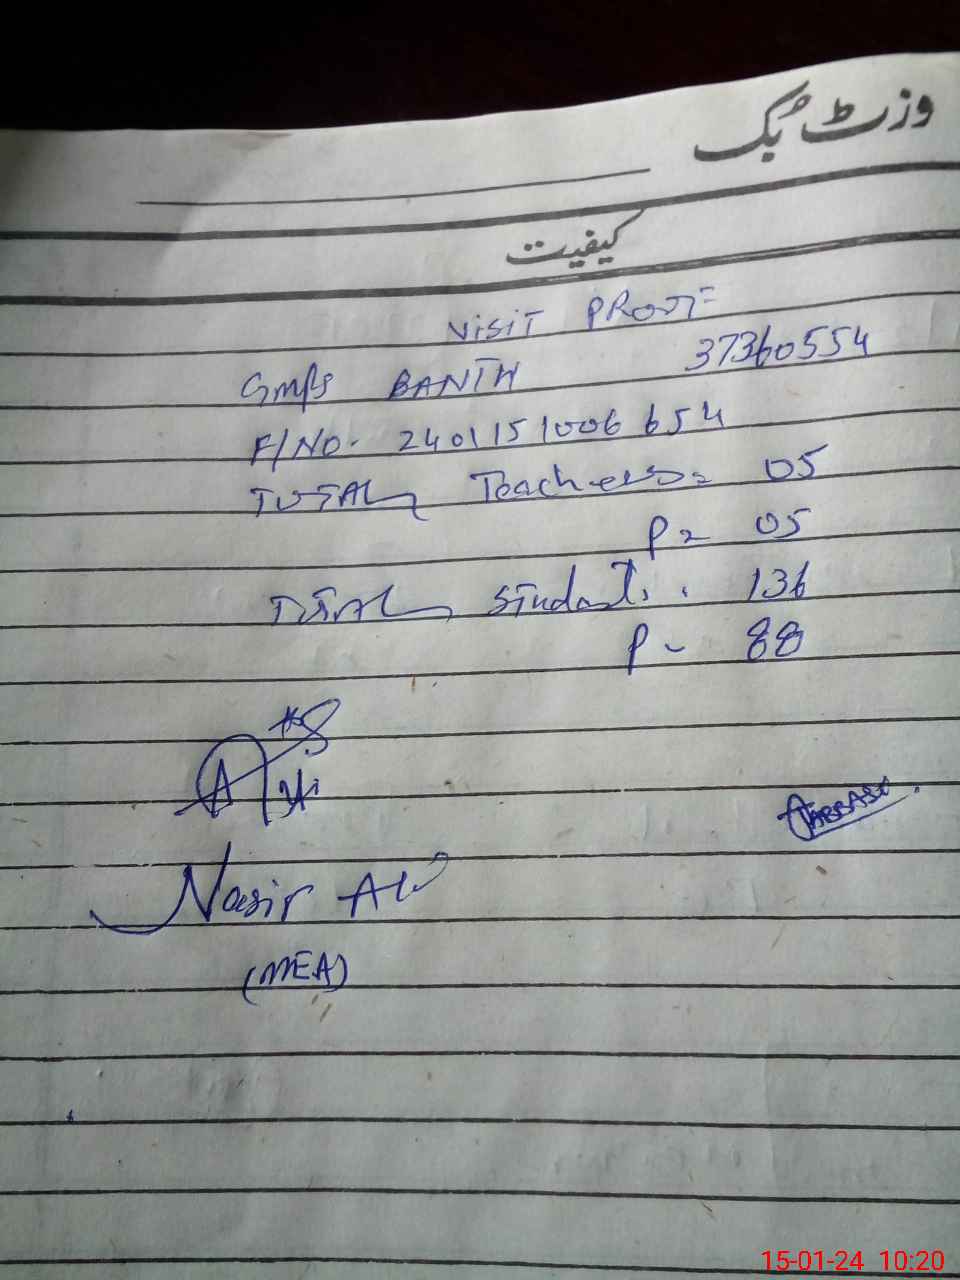 وزٹ بُک
کیفیت
VISIT PROOF
GMPS BANTH 37360554
F/NO. 2401151006654
TOTAL Teachers = 05
P = 05
TOTAL Students . 136
P - 88
Nasir Ali
(MEA)
ABBASI
15-01-24 10:20